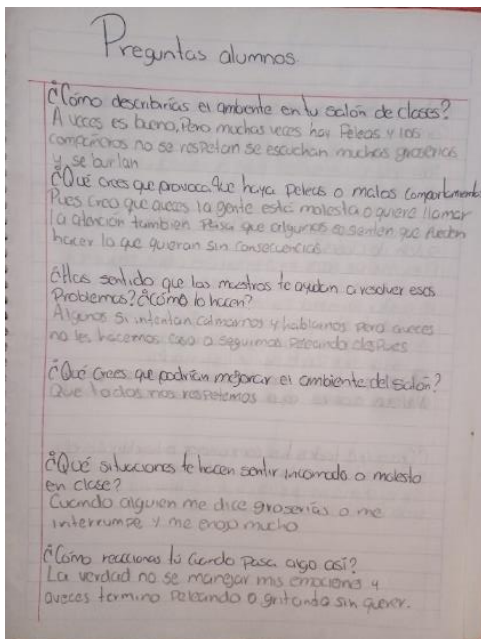 Preguntas alumnos
¿Cómo describirías el ambiente en tu salón de clases?
A veces es bueno, Pero muchas veces hay Peleas y los
compañeros no se respetan se escuchan muchas groserias
y se burlan
¿Qué crees que provoca que haya peleas o malos comportamientos
Pues creo que aveces la gente está molesta o quiere llamar
la atención tambien Pasa que algunos se sienten que Pueden
hacer lo que quieran sin consecuencias
¿Has sentido que los maestros te ayudan a resolver esos
Problemas? ¿Cómo lo hacen?
Algunos si intentan calmarnos y hablarnos pero aveces
no les hacemos caso o seguimos peleando después
¿Qué crees que podrían mejorar el ambiente del salón?
Que todos nos respetemos
¿Qué situaciones te hacen sentir incomodo o molesto
en clase?
Cuando alguien me dice groserías o me
interrumpe y me enojo mucho
¿Cómo reaccionas tú cuando Pasa algo así?
La verdad no se manejar mis emociones y
aveces termino peleando o gritando sin querer.